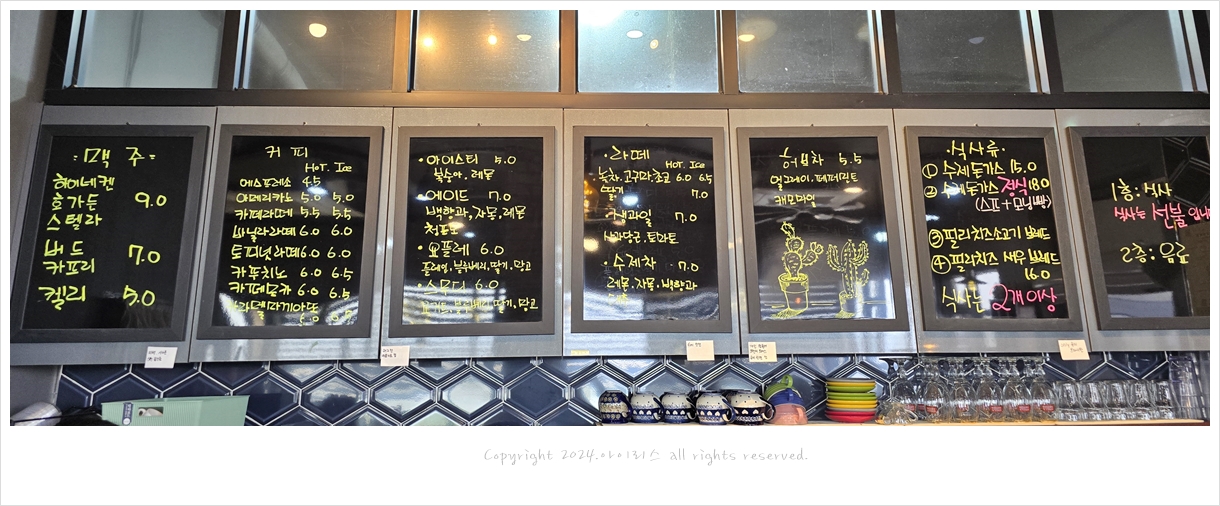 맥 주
하이네켄
호가든 9.0
스텔라
버드
카프리 7.0
켈리 5.0
커 피
HOT. Ice
에스프레소 4.5
아메리카노 5.0 5.0
카페라떼 5.5 5.5
바닐라라떼 6.0 6.0
토피넛라떼 6.0 6.0
카푸치노 6.0 6.5
카페모카 6.0 6.5
6.0 6.5
• 아이스티 5.0
복숭아. 레몬
• 에이드 7.0
백향과, 자몽, 레몬
청포도
• 요플레 6.0
플레인, 블루베리, 딸기, 망고
• 스무디 6.0
요거트, 블루베리, 딸기, 망고
• 라떼
HOT. Ice
녹차. 고구마. 초코 6.0 6.5
딸기 7.0
• 생과일 7.0
사과당근. 토마토
• 수제차 7.0
레몬. 자몽. 백향과
허브차 5.5
얼그레이. 페퍼민트
캐모마일
• 식사류 •
① 수제돈가스 15.0
② 수제돈가스 정식 18.0
(스프 + 모닝빵)
③ 필리치즈소고기 브레드
④ 필리치즈 새우 브레드
16.0
식사는 2개 이상
1층: 식사
식사는 선불 입니
2층: 음료
Copyright 2024.아이리스 all rights reserved.